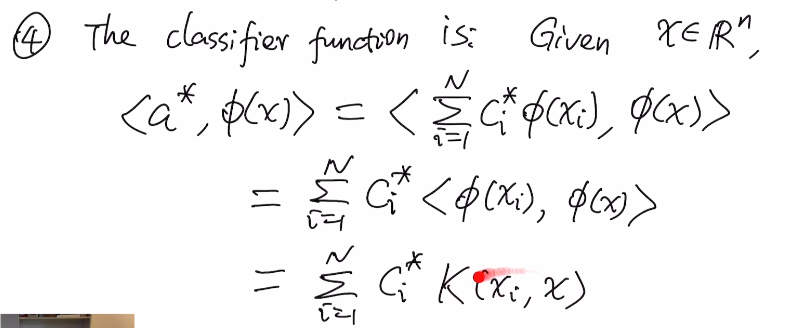 ④ The classifier function is: Given x∈ℝⁿ,
<a*, φ(x)> = < Σᵢ₌₁ᴺ Cᵢ* φ(xᵢ), φ(x)>
= Σᵢ₌₁ᴺ Cᵢ* <φ(xᵢ), φ(x)>
= Σᵢ₌₁ᴺ Cᵢ* K(xᵢ, x)